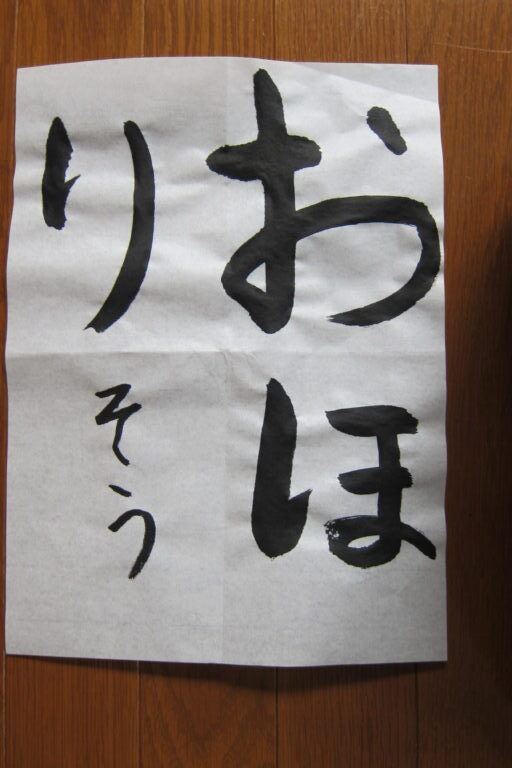 おほ
り
そう